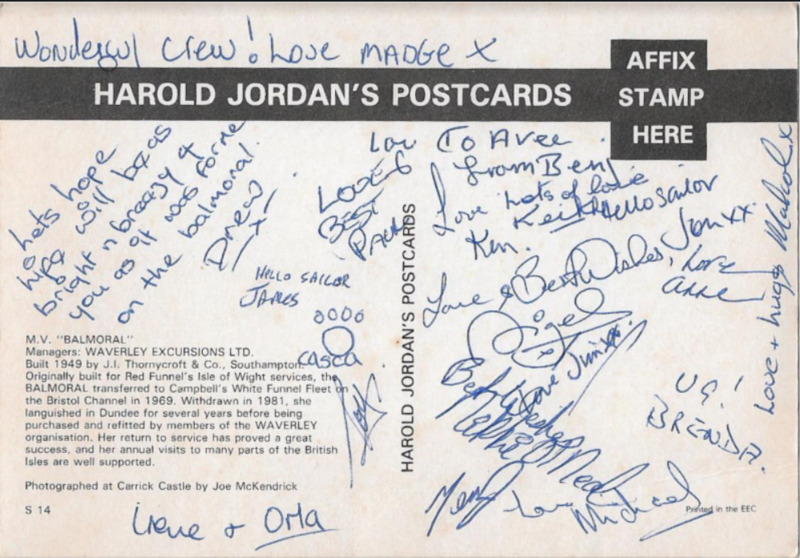 Wonderful Crew! Love MADGE X
AFFIX
STAMP
HERE
HAROLD JORDAN'S POSTCARDS
lets hope
will be as
bright n breezy &
you as it was for me
on the balmoral.
Drew! x
LOVE &
BEST
PAUL
HELLO SAILOR
JAMES
oooo
Love To Avee
from Ben
Love Lots of love
Keith Hello Sailor
Ken.
Jon xx.
Love & Best Wishes,
Love
Anne
Nigel
Love Junixx.
Best Wishes
UG!
BRENDA.
Love + hugs Malcolm x
Love
Michael
HAROLD JORDAN'S POSTCARDS
M.V. "BALMORAL"
Managers: WAVERLEY EXCURSIONS LTD.
Built 1949 by J.I. Thornycroft & Co., Southampton.
Originally built for Red Funnel's Isle of Wight services, the
BALMORAL transferred to Campbell's White Funnel Fleet on
the Bristol Channel in 1969. Withdrawn in 1981, she
languished in Dundee for several years before being
purchased and refitted by members of the WAVERLEY
organisation. Her return to service has proved a great
success, and her annual visits to many parts of the British
Isles are well supported.
Photographed at Carrick Castle by Joe McKendrick
S 14
Irene + Orla
Printed in the EEC